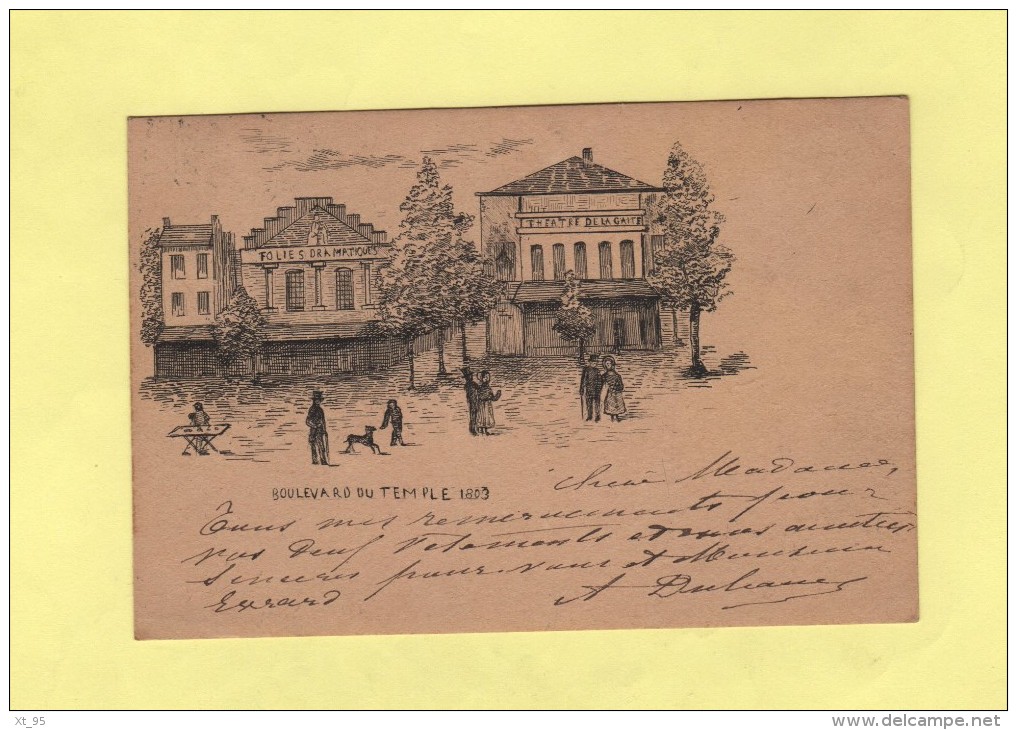 FOLIES DRAMATIQUES
THEATRE DE LA GAITE
BOULEVARD DU TEMPLE 1803
Chère Madame,
Tous mes remerciements pour
vos Deux Vêtements et mes amitiés
Sincères pour vous et Monsieur
Evrard A
Xt_95
www.delcampe.net